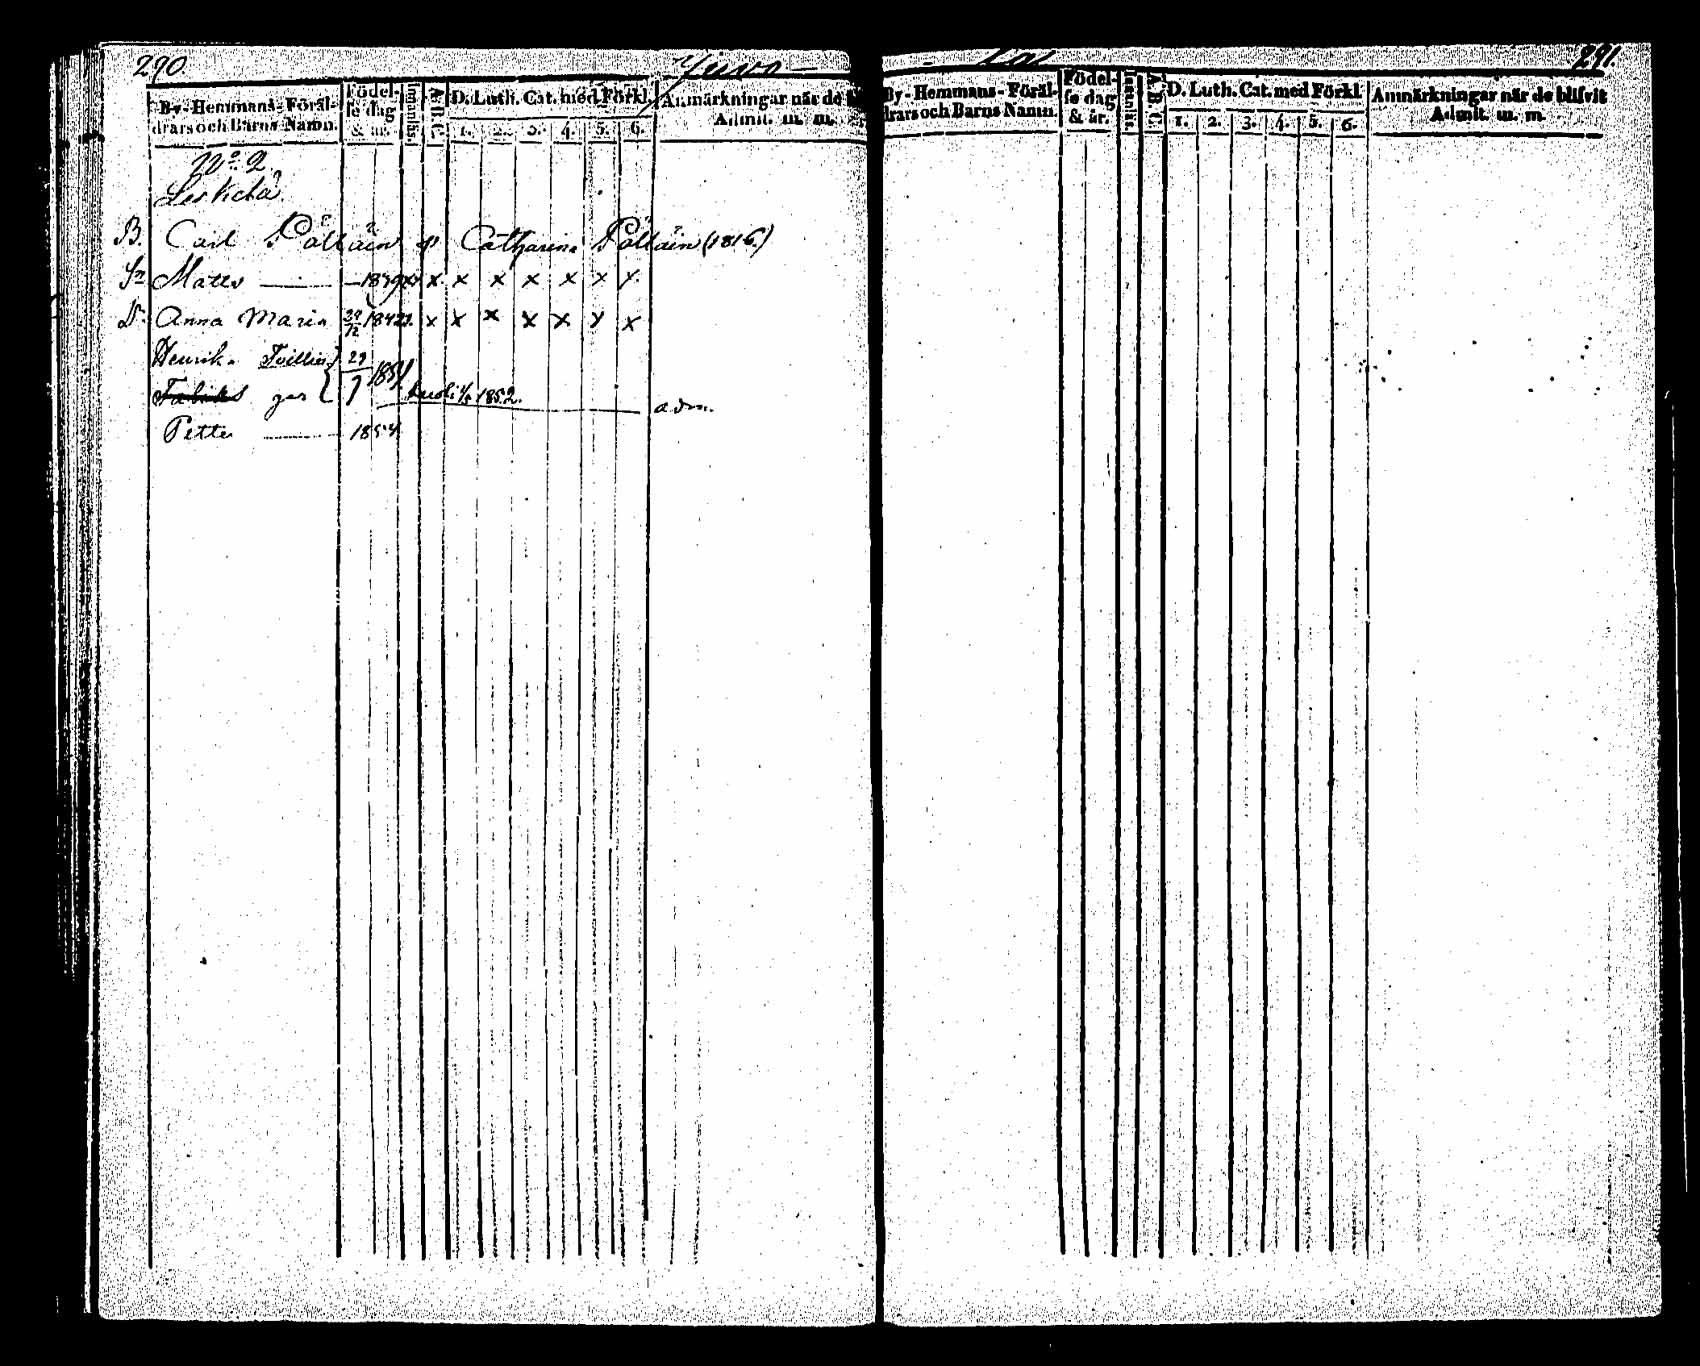 290.
By-Hemmans-Föräl-
drars och Barns Namn.
Födel-
se dag
& år.
Innanläs.
A B C.
D. Luth. Cat. med Förkl.
1. 2. 3. 4. 5. 6.
Anmärkningar när de
Admit. m. m.
N:o 2.
B. Carl Pöllänen Catharina Pöllän (1816.)
Sn Mats — 1839 x x x x x x x x
Dr Anna Maria 29/12 1842 x x x x x x x
Henrika Tvillin 29
gar 7 1851 1852.
adm.
Petter — 1854
291.
By-Hemmans-Föräl-
drars och Barns Namn.
Födel-
se dag
& år.
Innanläs.
A B C.
D. Luth. Cat. med Förkl
1. 2. 3. 4. 5. 6.
Anmärkningar när de blifvit
Admit. m. m.